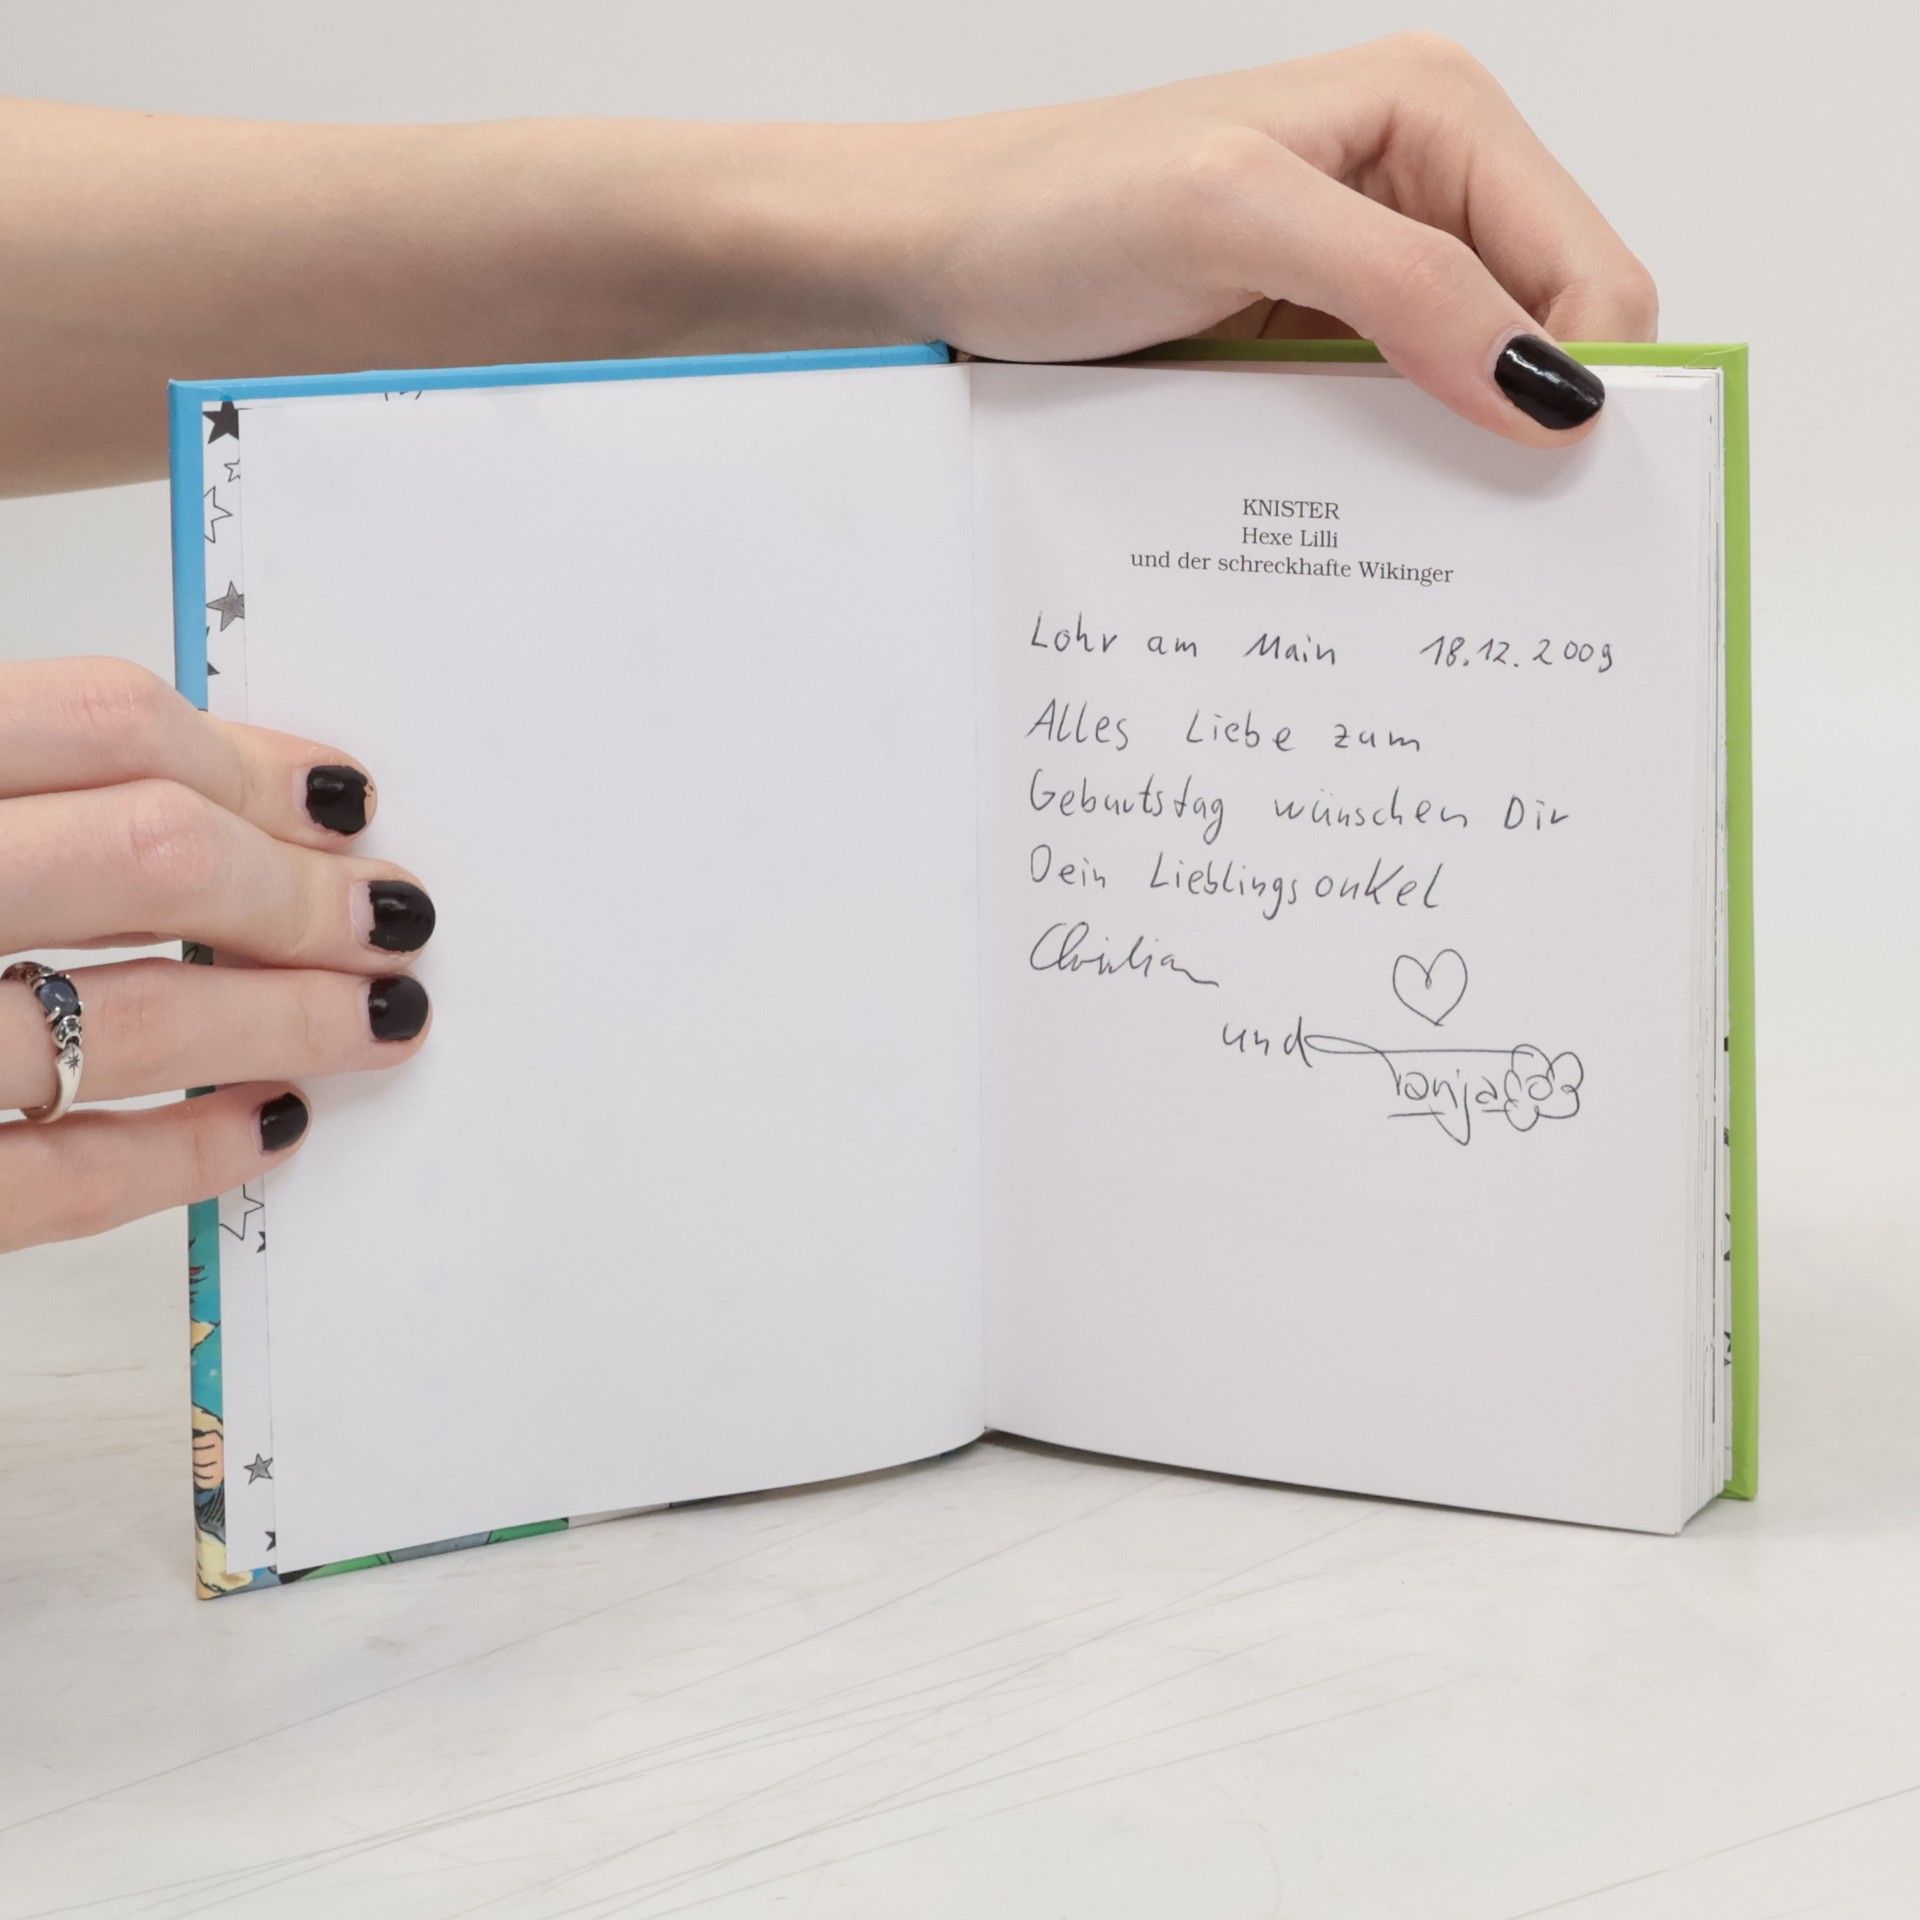 KNISTER
Hexe Lilli
und der schreckhafte Wikinger
Lohr am Main 18.12.2009
Alles Liebe zum
Geburtstag wünschen Dir
Dein Lieblingsonkel
Christian
und
Tanja